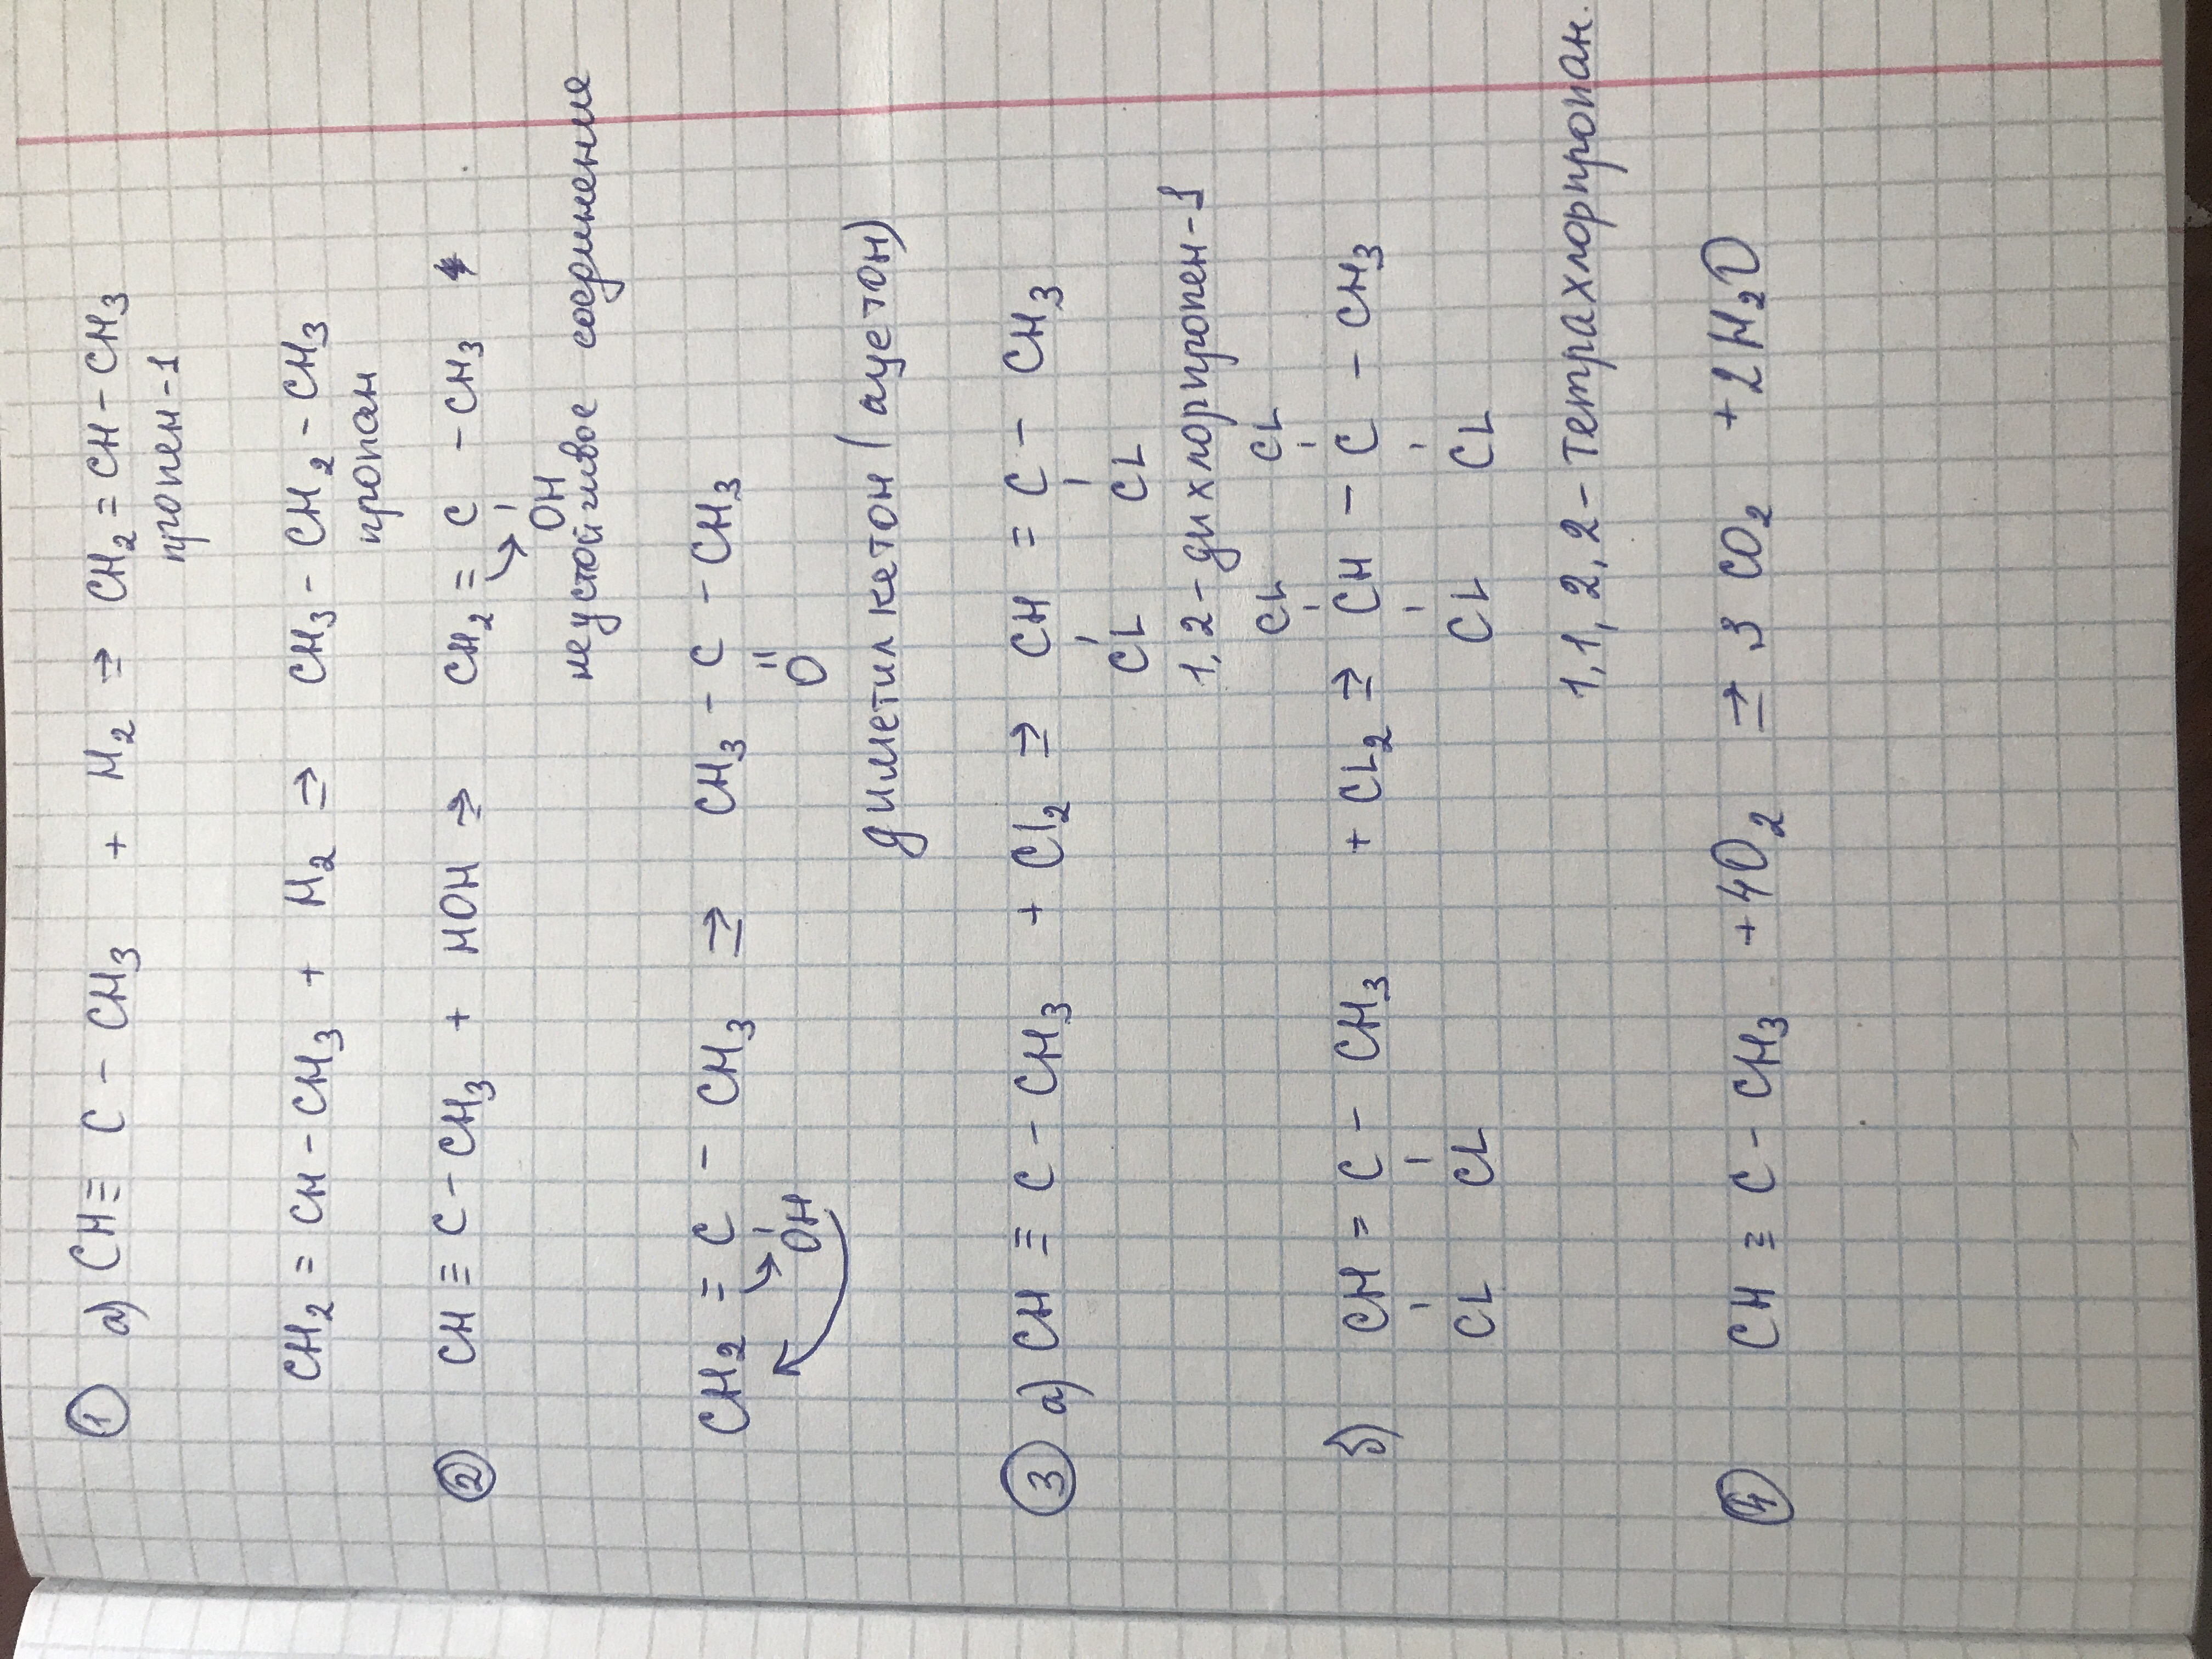 ① а) CH≡ C – CH₃ + H₂ ⇒ CH₂ = CH – CH₃
пропен-1
CH₂ = CH – CH₃ + H₂ ⇒ CH₃ – CH₂ – CH₃
пропан
② CH ≡ C – CH₃ + HOH ⇒ CH₂ = C – CH₃
OH
неустойчивое соединение
CH₂ = C – CH₃ ⇒ CH₃ – C – CH₃
OH O
диметилкетон (ацетон)
③ а) CH ≡ C – CH₃ + Cl₂ ⇒ CH = C – CH₃
CL CL
1, 2 – дихлорпропен-1
CL CL
б) CH = C – CH₃ + CL₂ ⇒ CH – C – CH₃
CL CL CL CL
1, 1, 2, 2 – тетрахлорпропан.
④ CH ≡ C – CH₃ + 4O₂ ⇒ 3 CO₂ + 2 H₂O